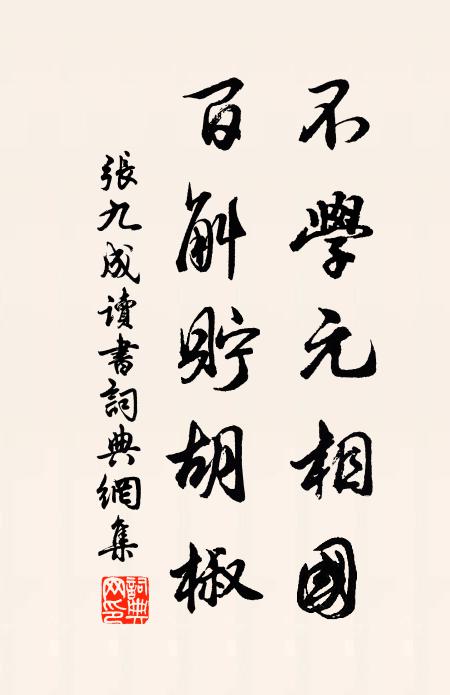 不學元相國
百斛貯胡椒
張九成讀書詞典網集
詞典網印